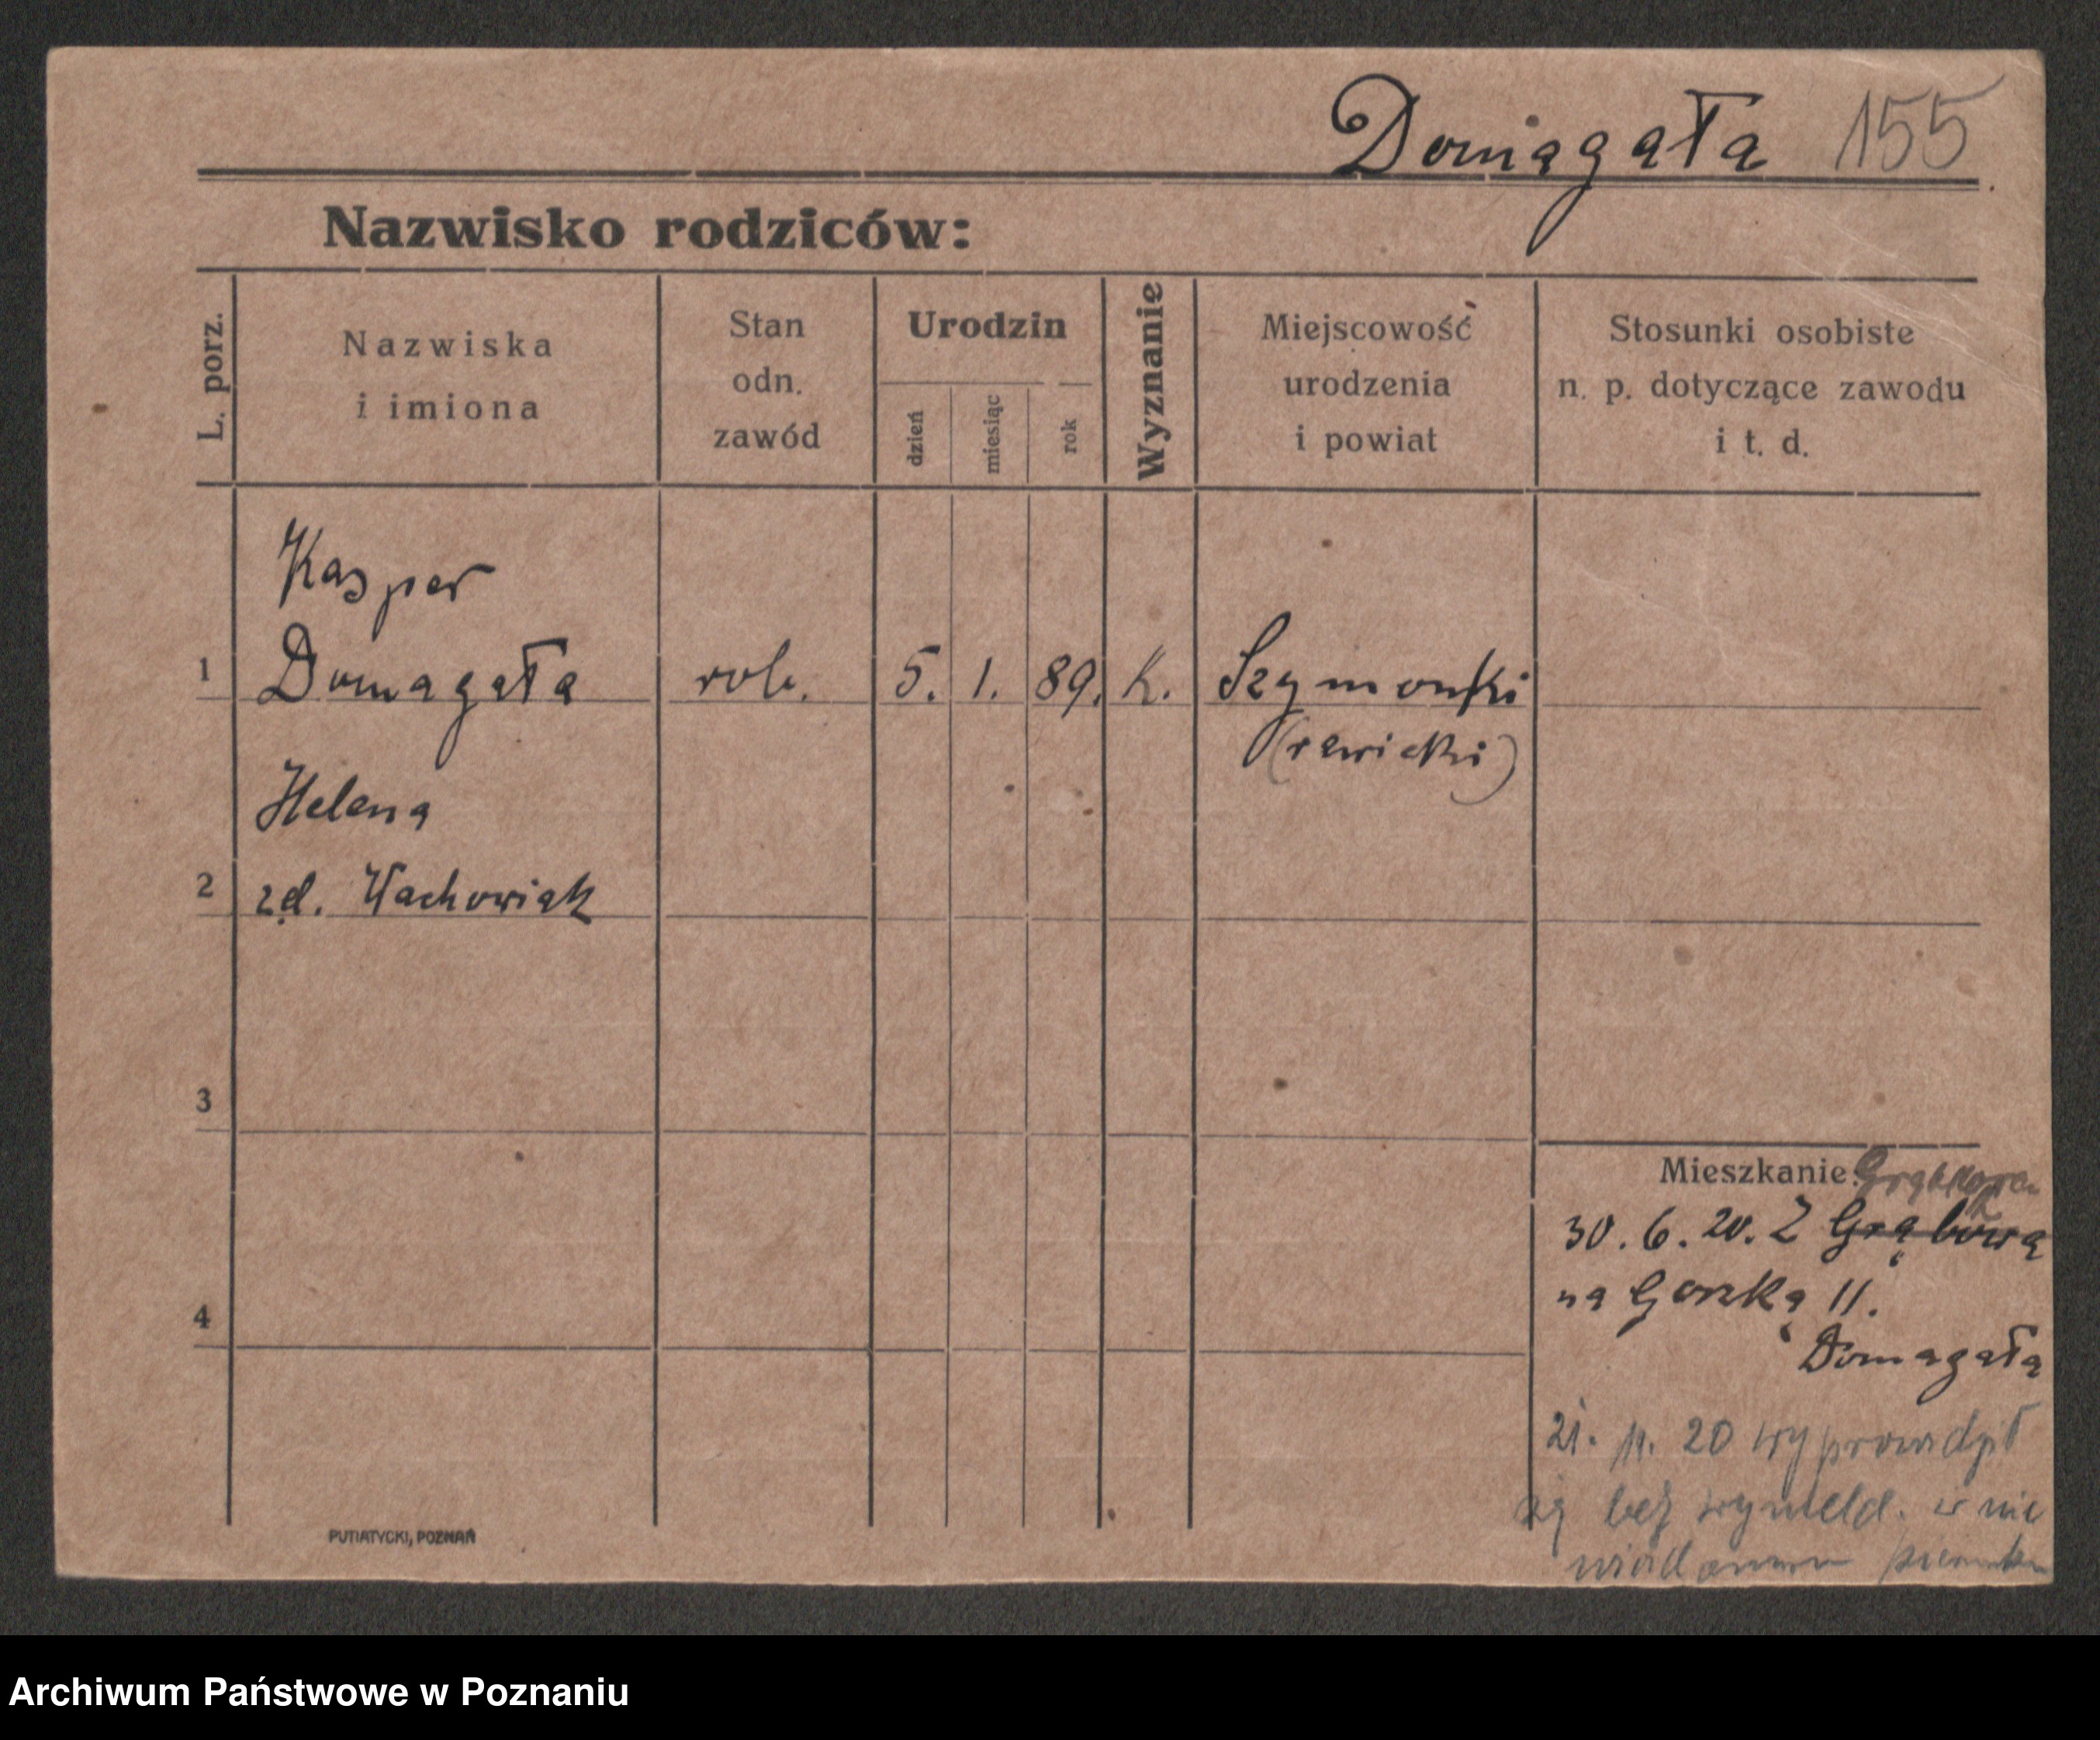 Domagała 155
Nazwisko rodziców:
L. porz.
Nazwiska
i imiona
Stan
odn.
zawód
Urodzin
dzień
miesiąc
rok
Wyznanie
Miejscowość
urodzenia
i powiat
Stosunki osobiste
n. p. dotyczące zawodu
i t. d.
Kasper
1 Domagała rob. 5. 1. 89. k. Szymonki
(rawicki)
Helena
2 zd. Wachowiak
3
Mieszkanie:
30. 6. 20. Z Grąbowa
na Gorzką 11.
4
Domagała
21. 11. 20 wyprowadził
się bez wymeld. w nie
wiadomem kierunku
PUTIATYCKI, POZNAŃ
Archiwum Państwowe w Poznaniu